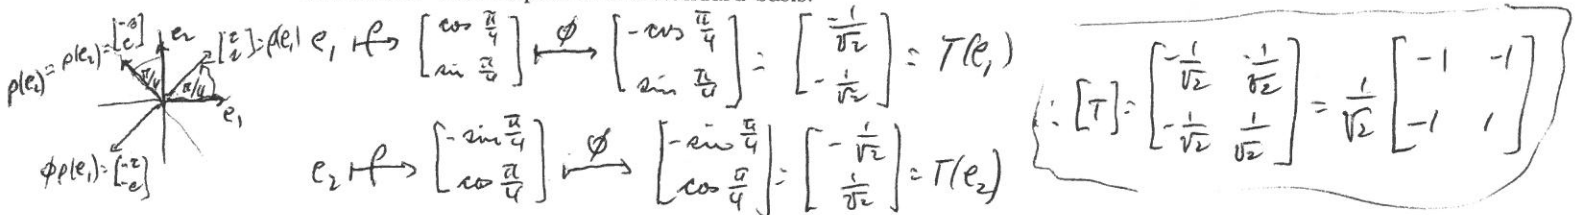 basis.
e₂
e₁
π/4
π/4
e₁ ↦ρ [cos π/4; sin π/4] ↦φ [-cos π/4; sin π/4] = [-1/√2; -1/√2] = T(e₁)
e₂ ↦ρ [-sin π/4; cos π/4] ↦φ [-sin π/4; cos π/4] = [-1/√2; 1/√2] = T(e₂)
∴ [T] = [-1/√2 -1/√2; -1/√2 1/√2] = 1/√2 [-1 -1; -1 1]